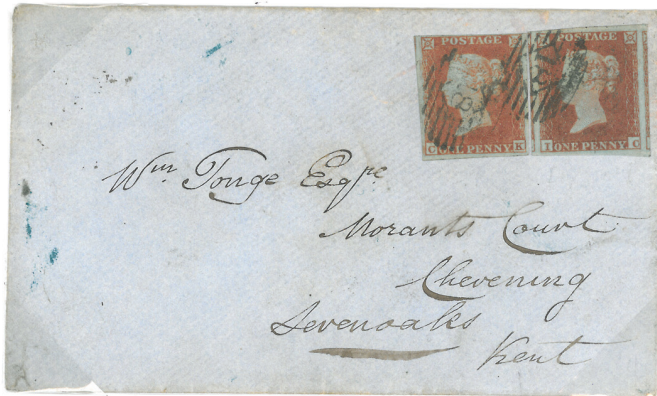 POSTAGE POSTAGE
ONE PENNY K I ONE PENNY C
Wm Tonge Esqre
Morants Court
Chevening
Sevenoaks
Kent